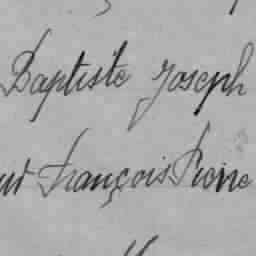 Baptiste Joseph
François Pierre